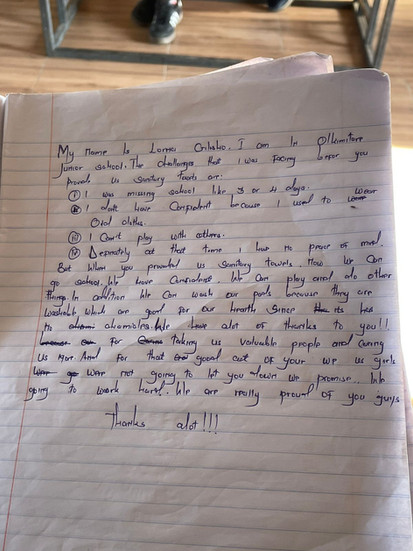 My name Is Lorna I am In Olkamitare
Junior school. The challenges that I was facing befor you
provide us sanitary towels are:
(i) I was missing school like 3 or 4 days.
(ii) I don't have Confident because I used to wear
Old cloths.
(iii) I Can't play with others.
(iv) Desmately at that time I have no peace of mind.
But when you provided us sanitary towels Now We Can
go school. We have Confidence We Can play and do other
things. In addition We Can wash our pads because they are
washable which are good for our health Since its has
no chamicoles. We have alot of thanks to you!!
For Taking us valuable people and Caring
us More. And For that good act of your we us girls
were not going to let you down we promise. We
going to work hard. We are really proud of you guys
Thanks alot!!!